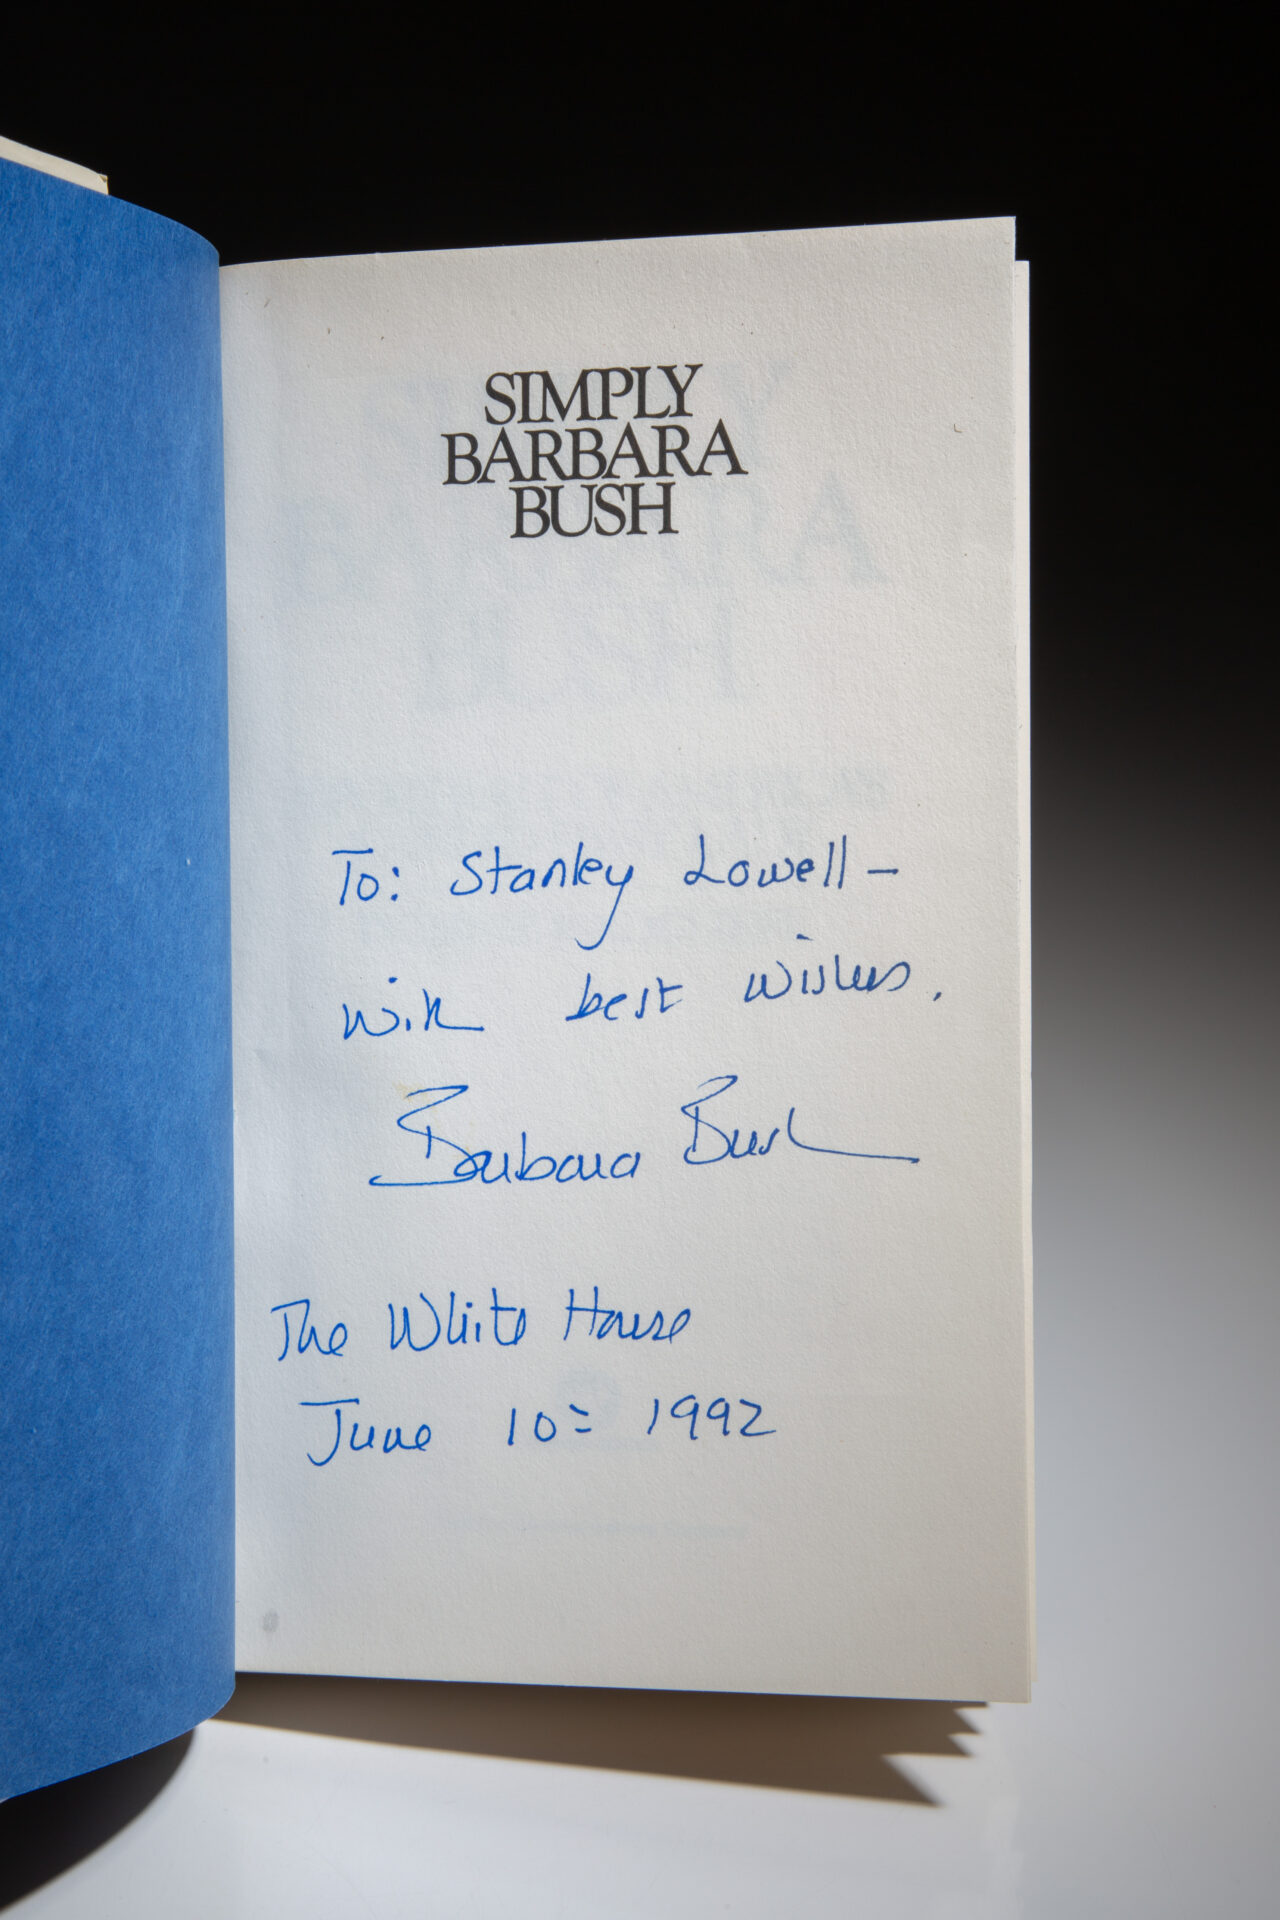 SIMPLY
BARBARA
BUSH
To: Stanley Lowell –
with best wishes.
Barbara Bush
The White House
June 10= 1992